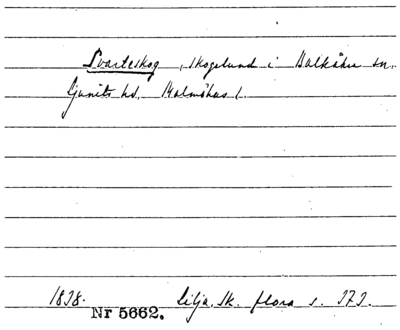 Svarteskog, skogslund i Balkåkra sn.
Ljunits hd. Malmöhus l.
1838. Lilja, Sk. flora s. 373.
Nr 5662.